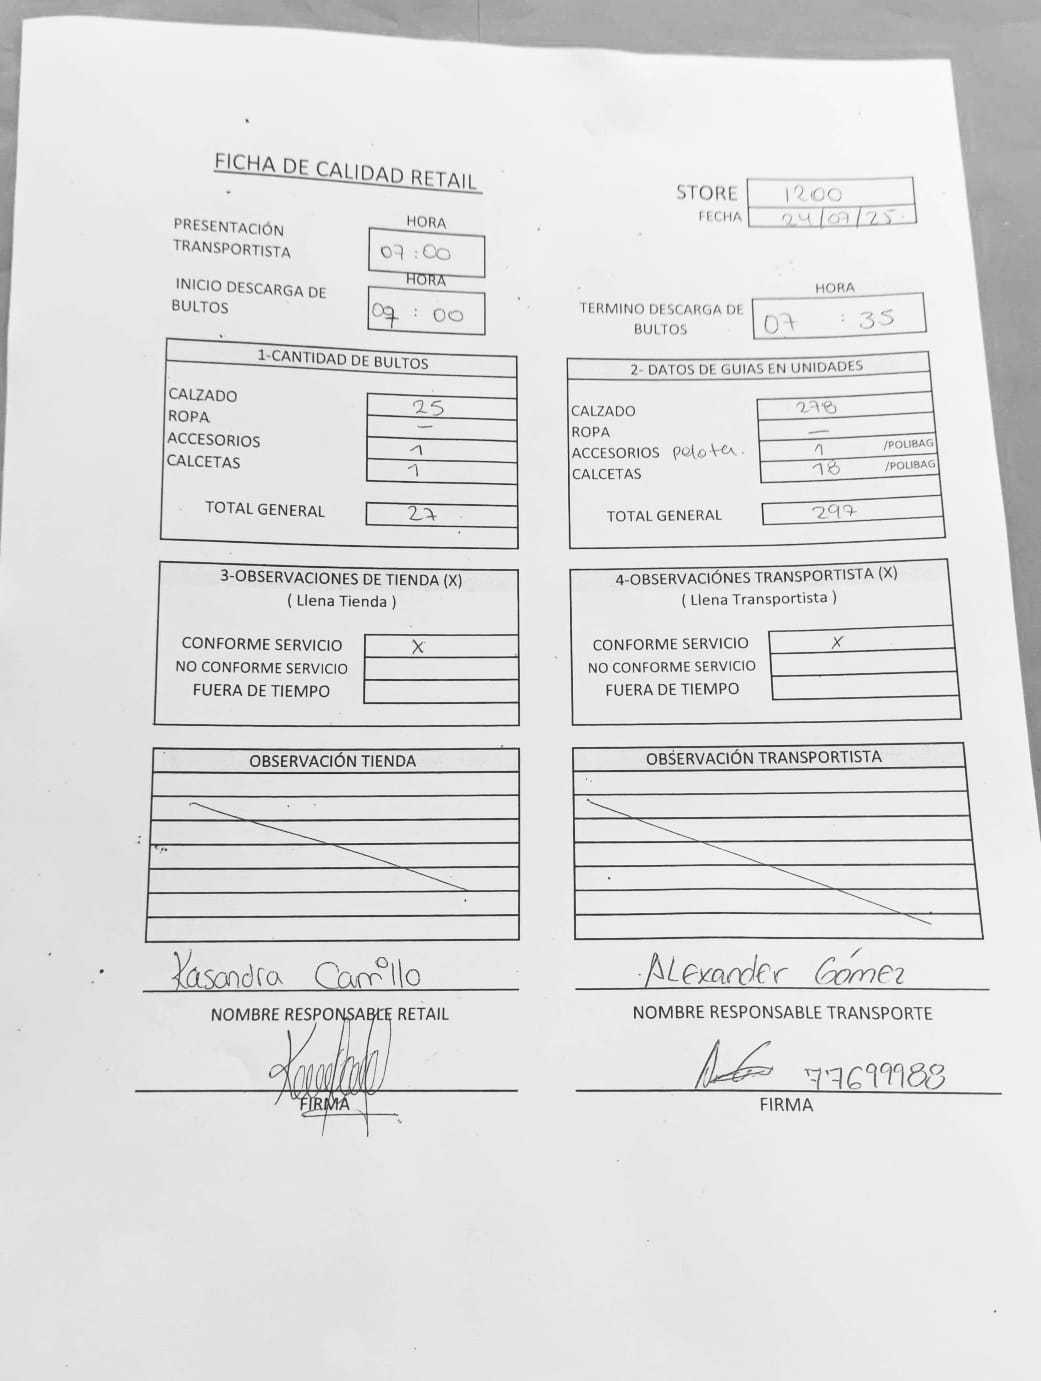 FICHA DE CALIDAD RETAIL
STORE 1200
FECHA 24/07/25.
PRESENTACIÓN TRANSPORTISTA
HORA
07:00
INICIO DESCARGA DE BULTOS
HORA
07 : 00
TERMINO DESCARGA DE BULTOS
HORA
07 : 35
1-CANTIDAD DE BULTOS
CALZADO 25
ROPA —
ACCESORIOS 1
CALCETAS 1
TOTAL GENERAL 27
2- DATOS DE GUIAS EN UNIDADES
CALZADO 278
ROPA —
ACCESORIOS pelota. 1 /POLIBAG
CALCETAS 18 /POLIBAG
TOTAL GENERAL 297
3-OBSERVACIONES DE TIENDA (X)
( Llena Tienda )
CONFORME SERVICIO X
NO CONFORME SERVICIO
FUERA DE TIEMPO
4-OBSERVACIÓNES TRANSPORTISTA (X)
( Llena Transportista )
CONFORME SERVICIO X
NO CONFORME SERVICIO
FUERA DE TIEMPO
OBSERVACIÓN TIENDA
OBSERVACIÓN TRANSPORTISTA
Kasandra Carrillo
NOMBRE RESPONSABLE RETAIL
FIRMA
ALexander Gómez
NOMBRE RESPONSABLE TRANSPORTE
77699988
FIRMA